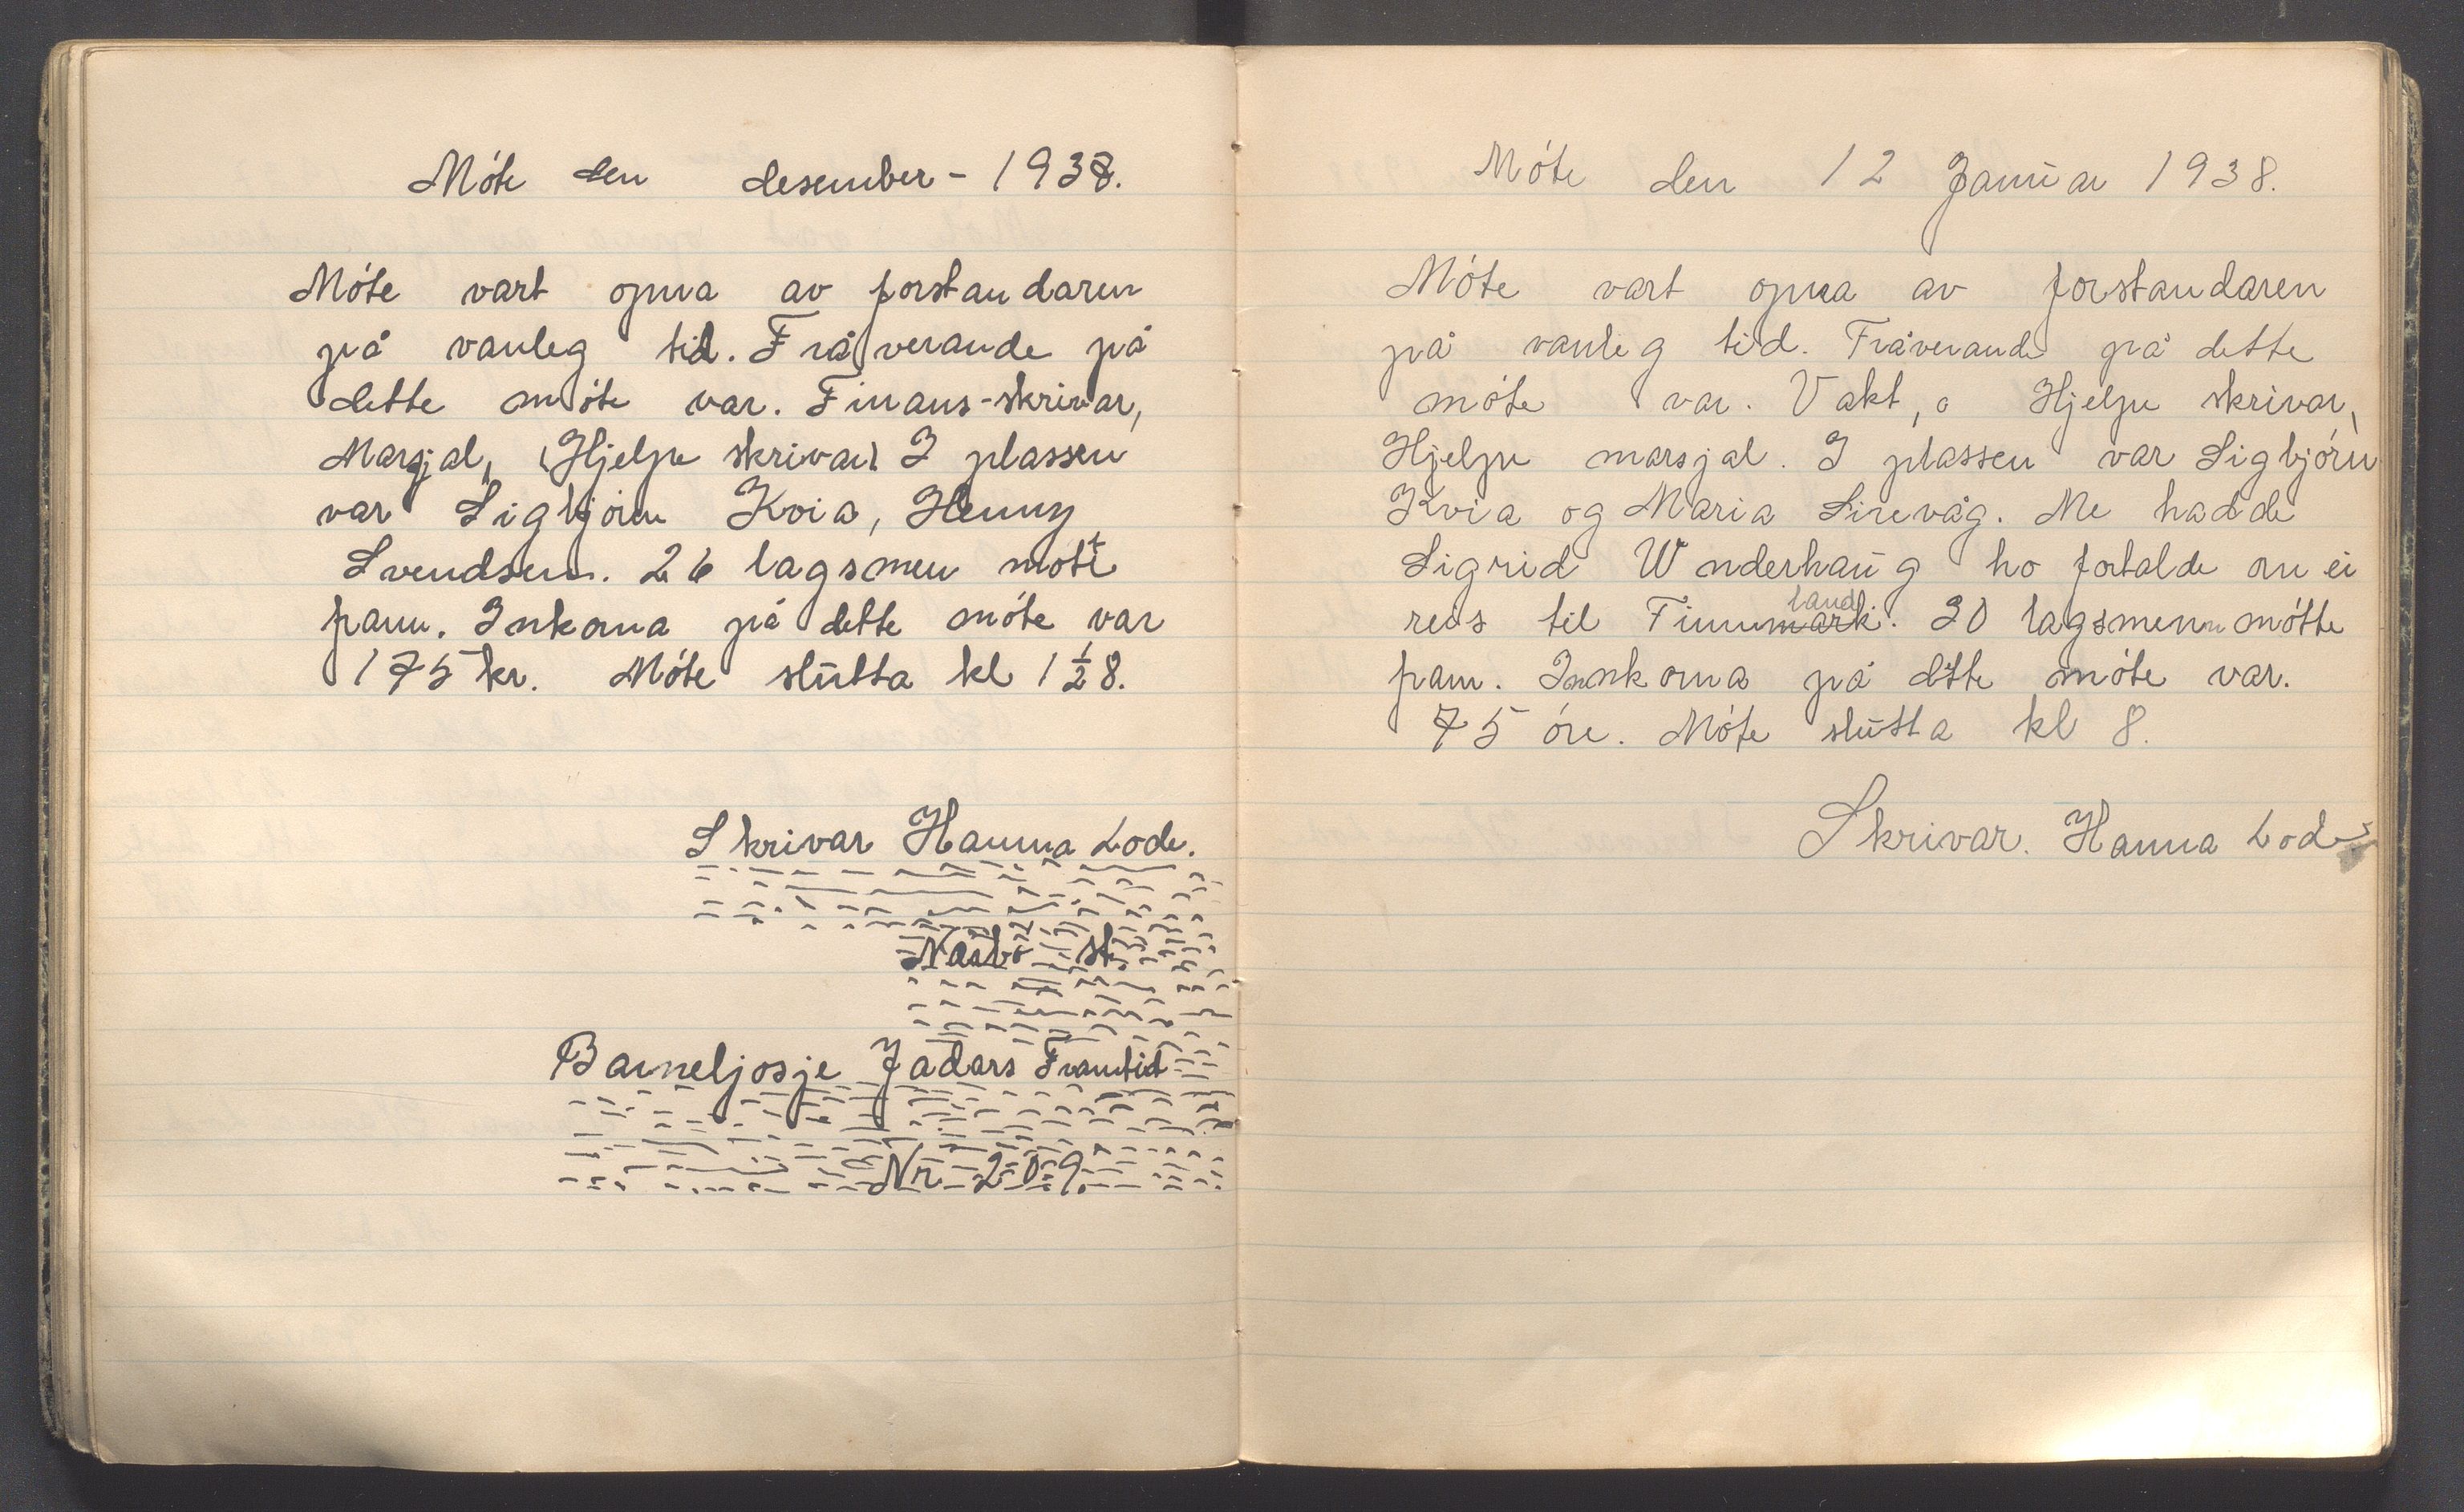 Móte den desember - 1938.
Móte vart opna av forstandaren
på vanleg tid. Fråverande på
dette móte var. Finans-skrivar,
Marsjal, (Hjelpe skrivar) I plassen
var Sigbjórn Kvia, Henny
Svendsen. 26 lagsmen mótte
fram. Inkoma på dette móte var
175 kr. Móte slutta kl 1 1/2 8.
Skrivar Hanna Lode.
Nærbö st.
Barneljosje Jadars Framtid
Nr 209
Móte den 12 Januar 1938.
Móte vart opna av forstandaren
på vanleg tid. Fråverande på dette
móte var. Vakt, Hjelpe skrivar,
Hjelpe marsjal. I plassen var Sigbjórn
Kvia og Maria Sirevåg. Me hadde
Sigrid Wnderhaug ho fortalde om ei
reis til Finnmark land. 30 lagsmenn mótte
fram. Innkoma på dette móte var.
75 óre. Móte slutta kl 8.
Skrivar. Hanna Lode